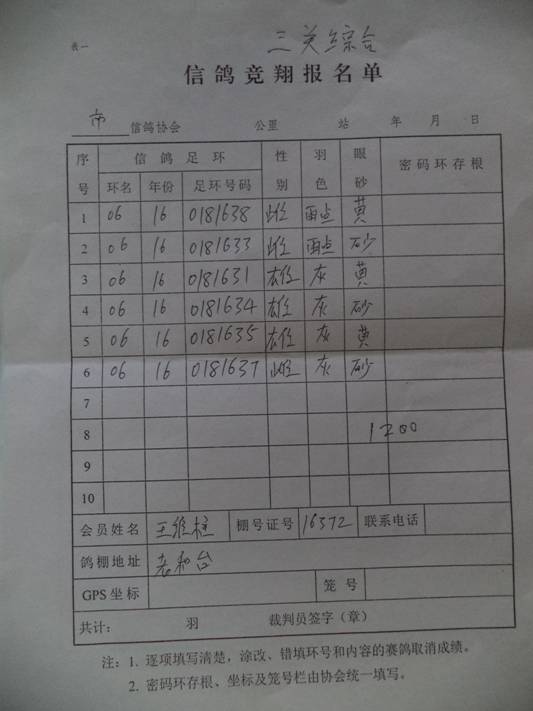 表一
三关综合
信鸽竞翔报名单
市 信鸽协会 公里 站 年 月 日
序号 信鸽足环 性别 羽色 眼砂 密码环存根
环名 年份 足环号码
1 06 16 0181638 雌 雨点 黄
2 06 16 0181633 雌 雨点 砂
3 06 16 0181631 雄 灰 黄
4 06 16 0181634 雄 灰 砂
5 06 16 0181635 雄 灰 黄
6 06 16 0181637 雌 灰 砂
7
8 1200
9
10
会员姓名 王维柱 棚号证号 16372 联系电话
鸽棚地址 老和台
GPS坐标 笼号
共计: 羽 裁判员签字(章)
注: 1. 逐项填写清楚，涂改、错填环号和内容的赛鸽取消成绩。
2. 密码环存根、坐标及笼号栏由协会统一填写。